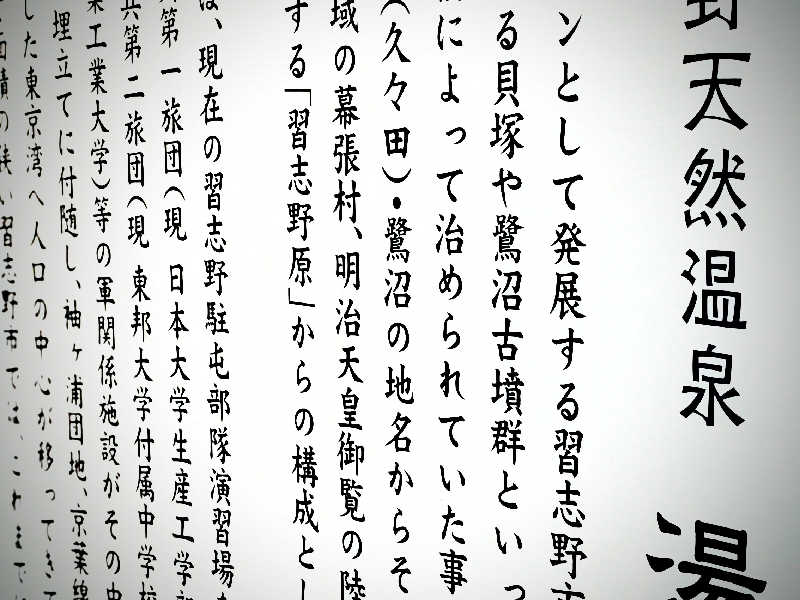 天然温泉 湯
ンとして発展する習志野市
る貝塚や鷺沼古墳群といっ
によって治められていた事
(久々田)・鷺沼の地名からそ
域の幕張村、明治天皇御覧の陸
する「習志野原」からの構成とし
は、現在の習志野駐屯部隊演習場
第一旅団(現 日本大学生産工学部
兵第二旅団(現 東邦大学付属中学校
業工業大学)等の軍関係施設がその中
埋立てに付随し、袖ヶ浦団地、京葉線
した東京湾へ人口の中心が移ってきて
面積の狭い習志野市では、これまで